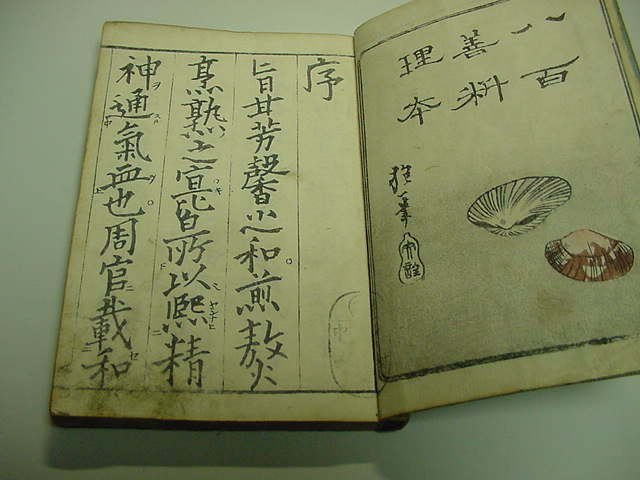 八百
善料
理本
序
旨甘芳馨之和煎熬
烹熟之宜皆所以熈精
神通氣血也周官載和